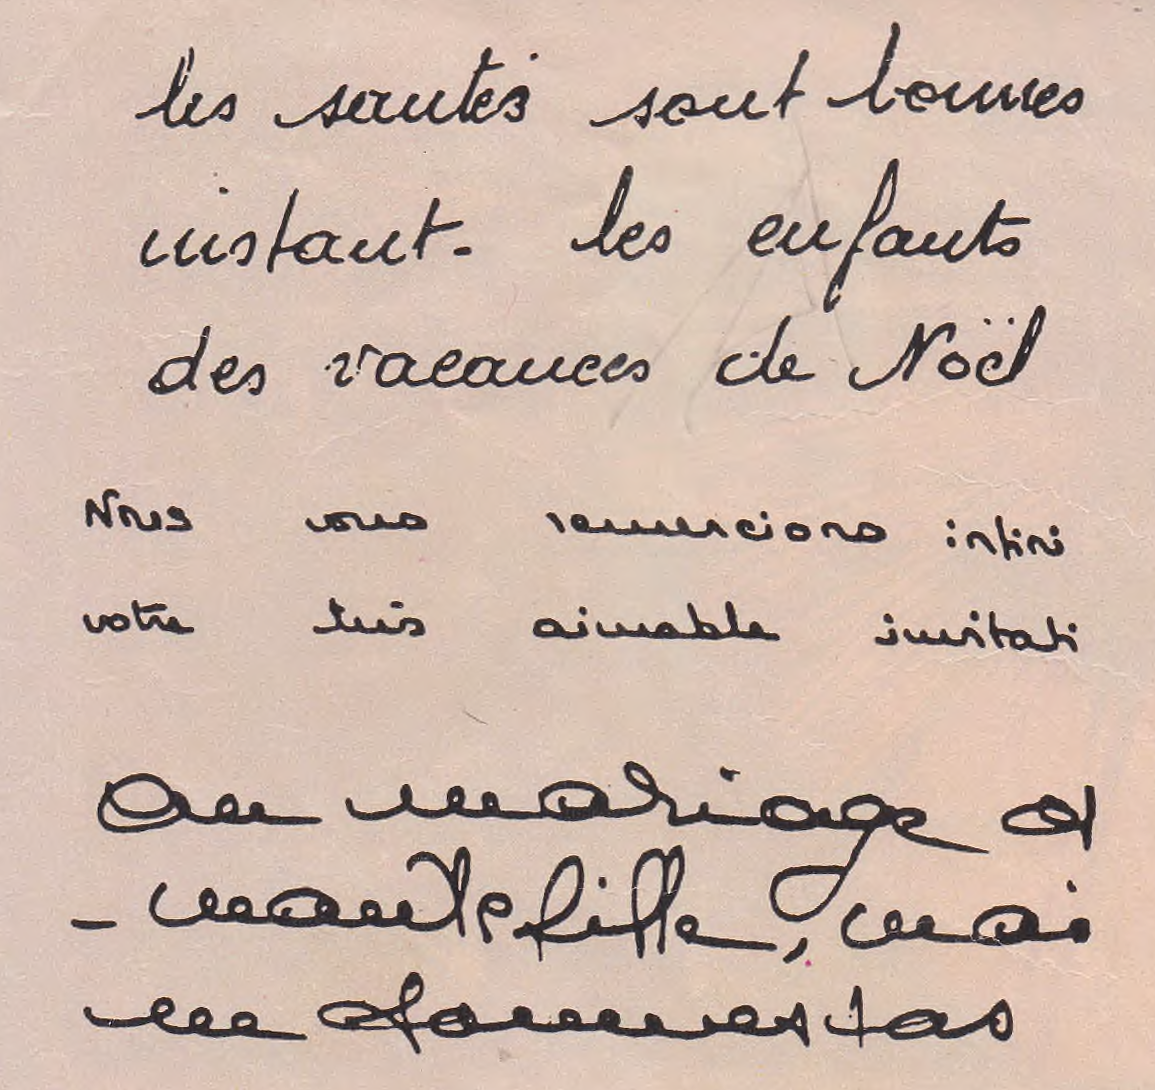 les santés sont bonnes
instant. les enfants
des vacances de Noël
Nous vous remercions infini
votre très aimable invitati
au mariage d
-mante fille, mai
ne sommes pas